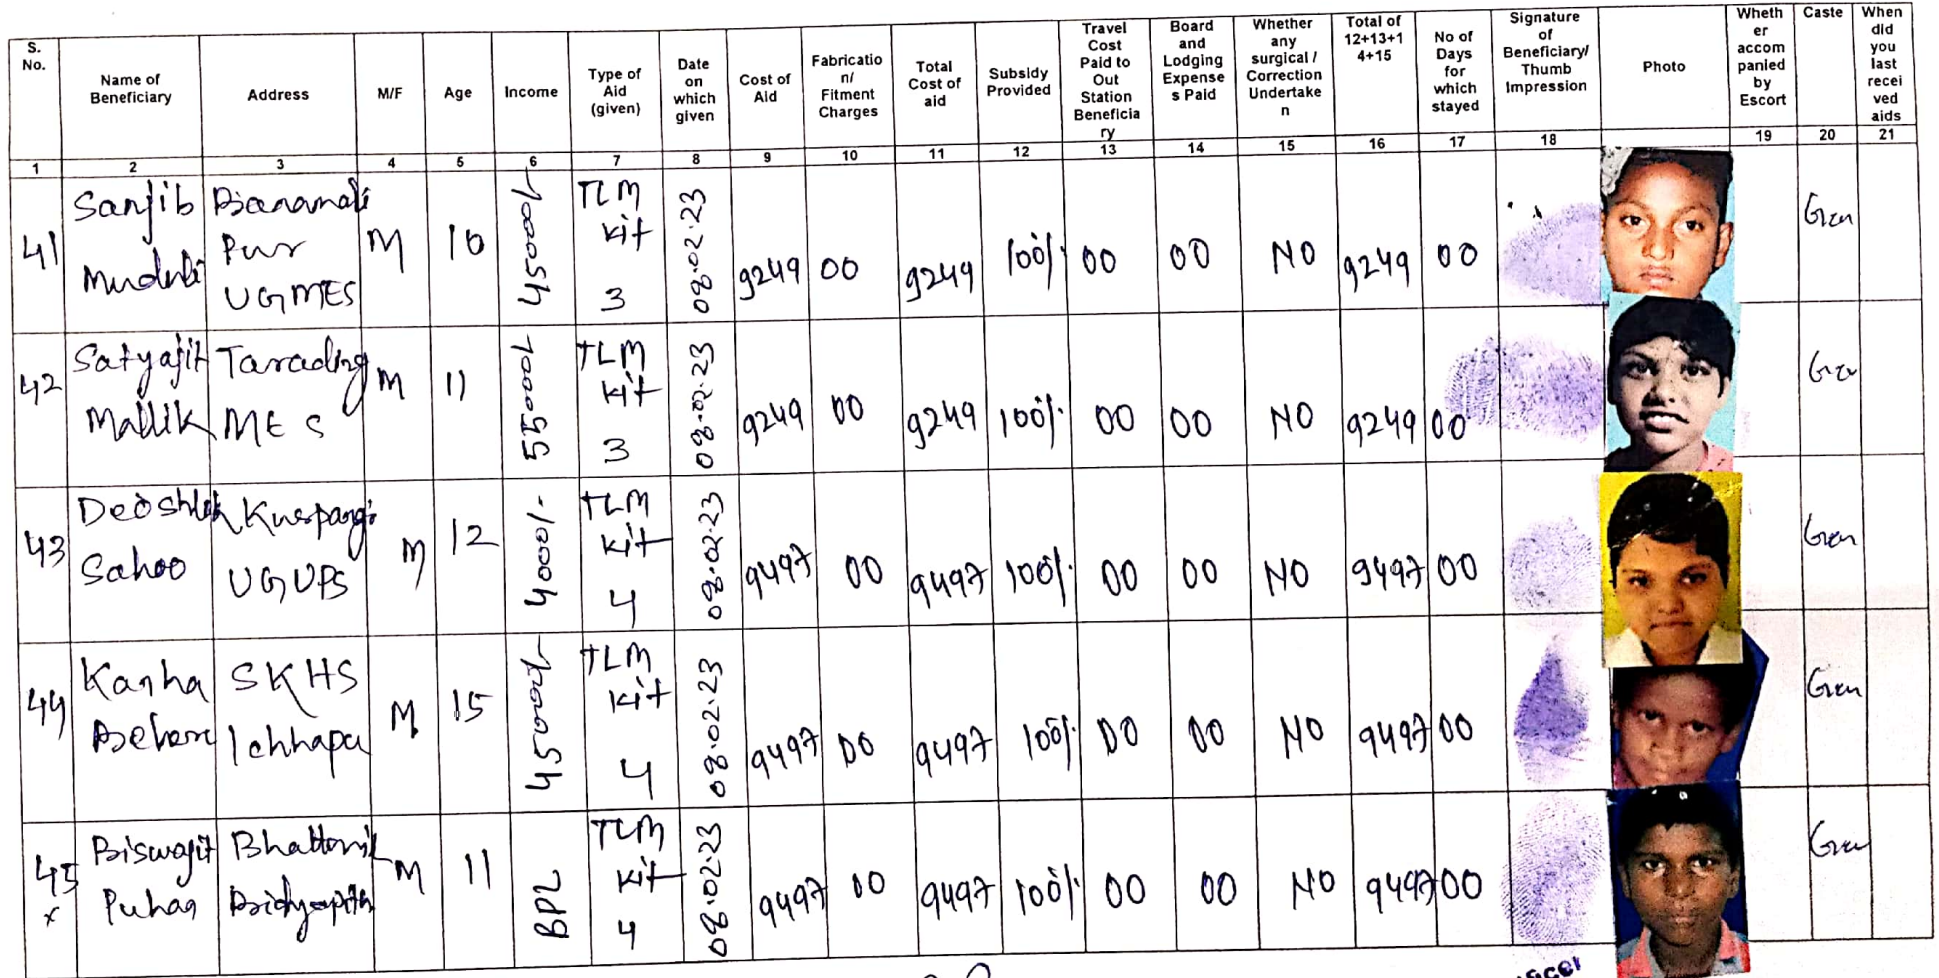 S. No.
Name of Beneficiary
Address
M/F
Age
Income
Type of Aid (given)
Date on which given
Cost of Aid
Fabricatio n/ Fitment Charges
Total Cost of aid
Subsidy Provided
Travel Cost Paid to Out Station Beneficia ry
Board and Lodging Expense s Paid
Whether any surgical / Correction Undertake n
Total of 12+13+1 4+15
No of Days for which stayed
Signature of Beneficiary/ Thumb Impression
Photo
Wheth er accom panied by Escort
Caste
When did you last recei ved aids
1 2 3 4 5 6 7 8 9 10 11 12 13 14 15 16 17 18 19 20 21
41 Sanjib Muduli Banamali Pur UGMES M 10 45000/- TLM Kit 3 08.02.23 9249 00 9249 100% 00 00 NO 9249 00 Gen
42 Satyajit Mallik Tarading MES M 11 55000/- TLM Kit 3 08.02.23 9249 00 9249 100% 00 00 NO 9249 00 Gen
43 Sahoo Kuspangi UGUPS M 12 4000/- TLM Kit 4 08.02.23 9497 00 9497 100% 00 00 NO 9497 00 Gen
44 Kanha Behera SKHS Ichhapur M 15 45000/- TLM Kit 4 08.02.23 9497 00 9497 100% 00 00 NO 9497 00 Gen
45 x Biswajit Puhan Bidyapith M 11 BPL TLM Kit 4 08.02.23 9497 00 9497 100% 00 00 NO 9497 00 Gen